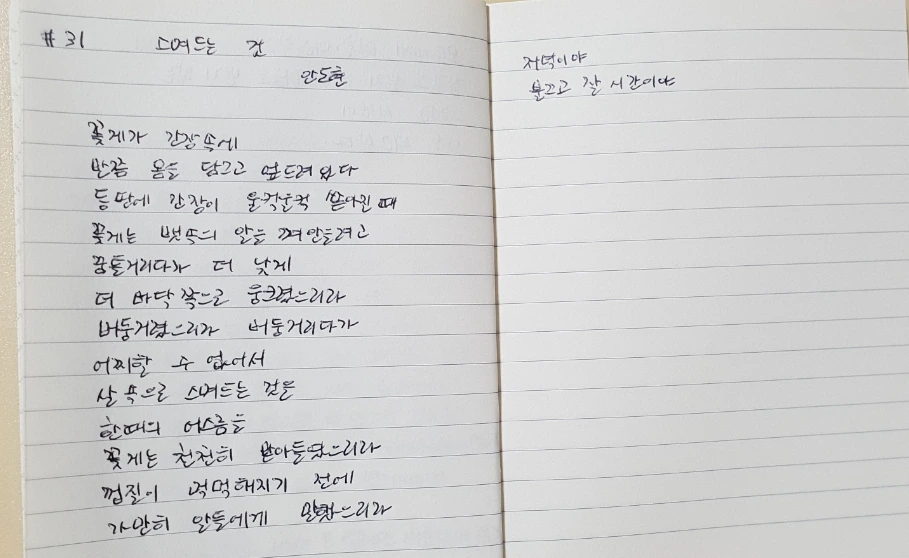 #31 스며드는 것
안도현
꽃게가 간장 속에
반쯤 몸을 담그고 엎드려 있다
등판에 간장이 울컥울컥 쏟아질 때
꽃게는 뱃속의 알을 껴안으려고
꿈틀거리다가 더 낮게
더 바닥 쪽으로 웅크렸으리라
버둥거렸으리라 버둥거리다가
어찌할 수 없어서
살 속으로 스며드는 것을
한때의 어스름을
꽃게는 천천히 받아들였으리라
껍질이 먹먹해지기 전에
가만히 알들에게 말했으리라
저녁이야
불끄고 잘 시간이야